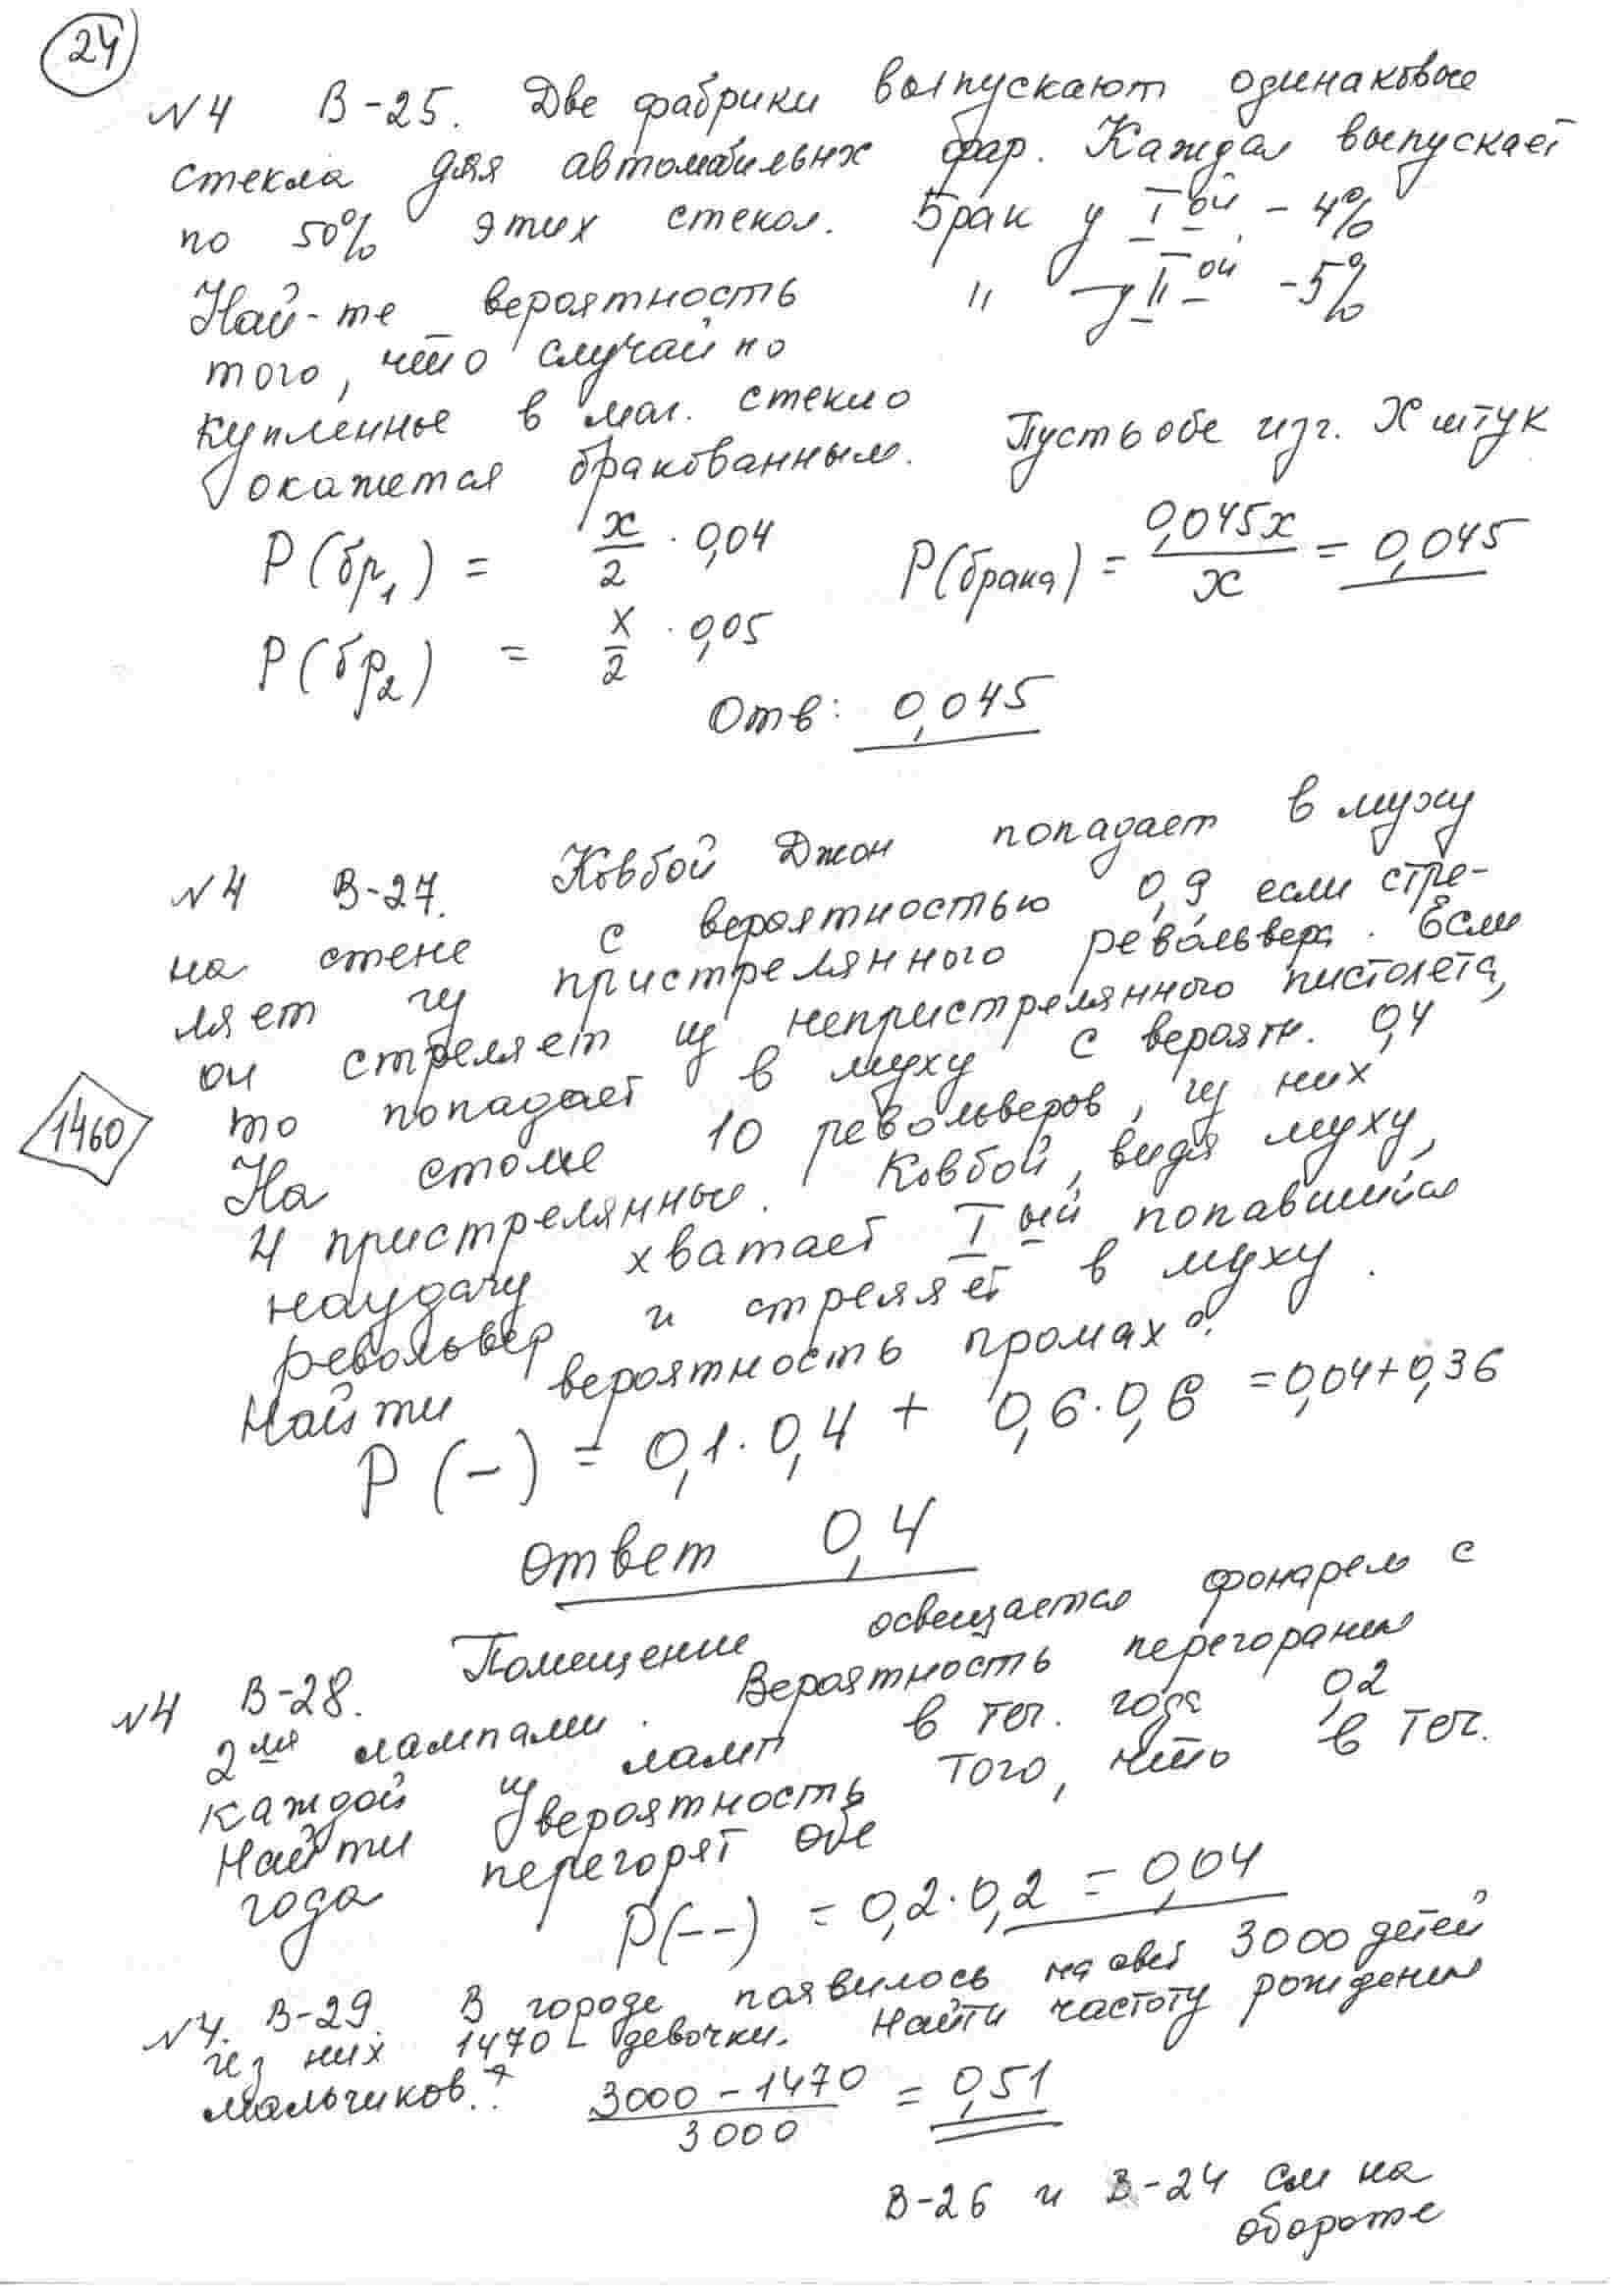 24
№4 В-25. Две фабрики выпускают одинаковые
стекла для автомобильных фар. Каждая выпускает
по 50% этих стекол. Брак у I ой - 4%
Най-те вероятность " — у II ой - 5%
того, что случайно
купленное в маг. стекло
окажется бракованным. Пусть обе изг. X штук
P(бр1) = x/2 · 0,04 P(брака) = 0,045x/x = 0,045
P(бр2) = x/2 · 0,05
Отв: 0,045
№4 В-27. Ковбой Джон попадает в муху
на стене с вероятностью 0,9 если стре-
ляет из пристрелянного револьвера. Если
он стреляет из непристрелянного пистолета,
то попадает в муху с вероятн. 0,4
1460
На столе 10 револьверов, из них
4 пристрелянные. Ковбой, видя муху,
наудачу хватает I ый попавшийся
револьвер и стреляет в муху.
Найти вероятность промаха?
P(-) = 0,1·0,4 + 0,6·0,6 = 0,04+0,36
ответ 0,4
№4 В-28. Помещение освещается фонарем с
2мя лампами. Вероятность перегорания
каждой из ламп в теч. года 0,2
Найти вероятность того, что в теч.
года перегорят обе
P(--) = 0,2·0,2 = 0,04
№4. В-29. В городе появилось на свет 3000 детей
из них 1470 - девочки. Найти частоту рождения
мальчиков.? 3000 - 1470/3000 = 0,51
В-26 и В-24 см на
обороте